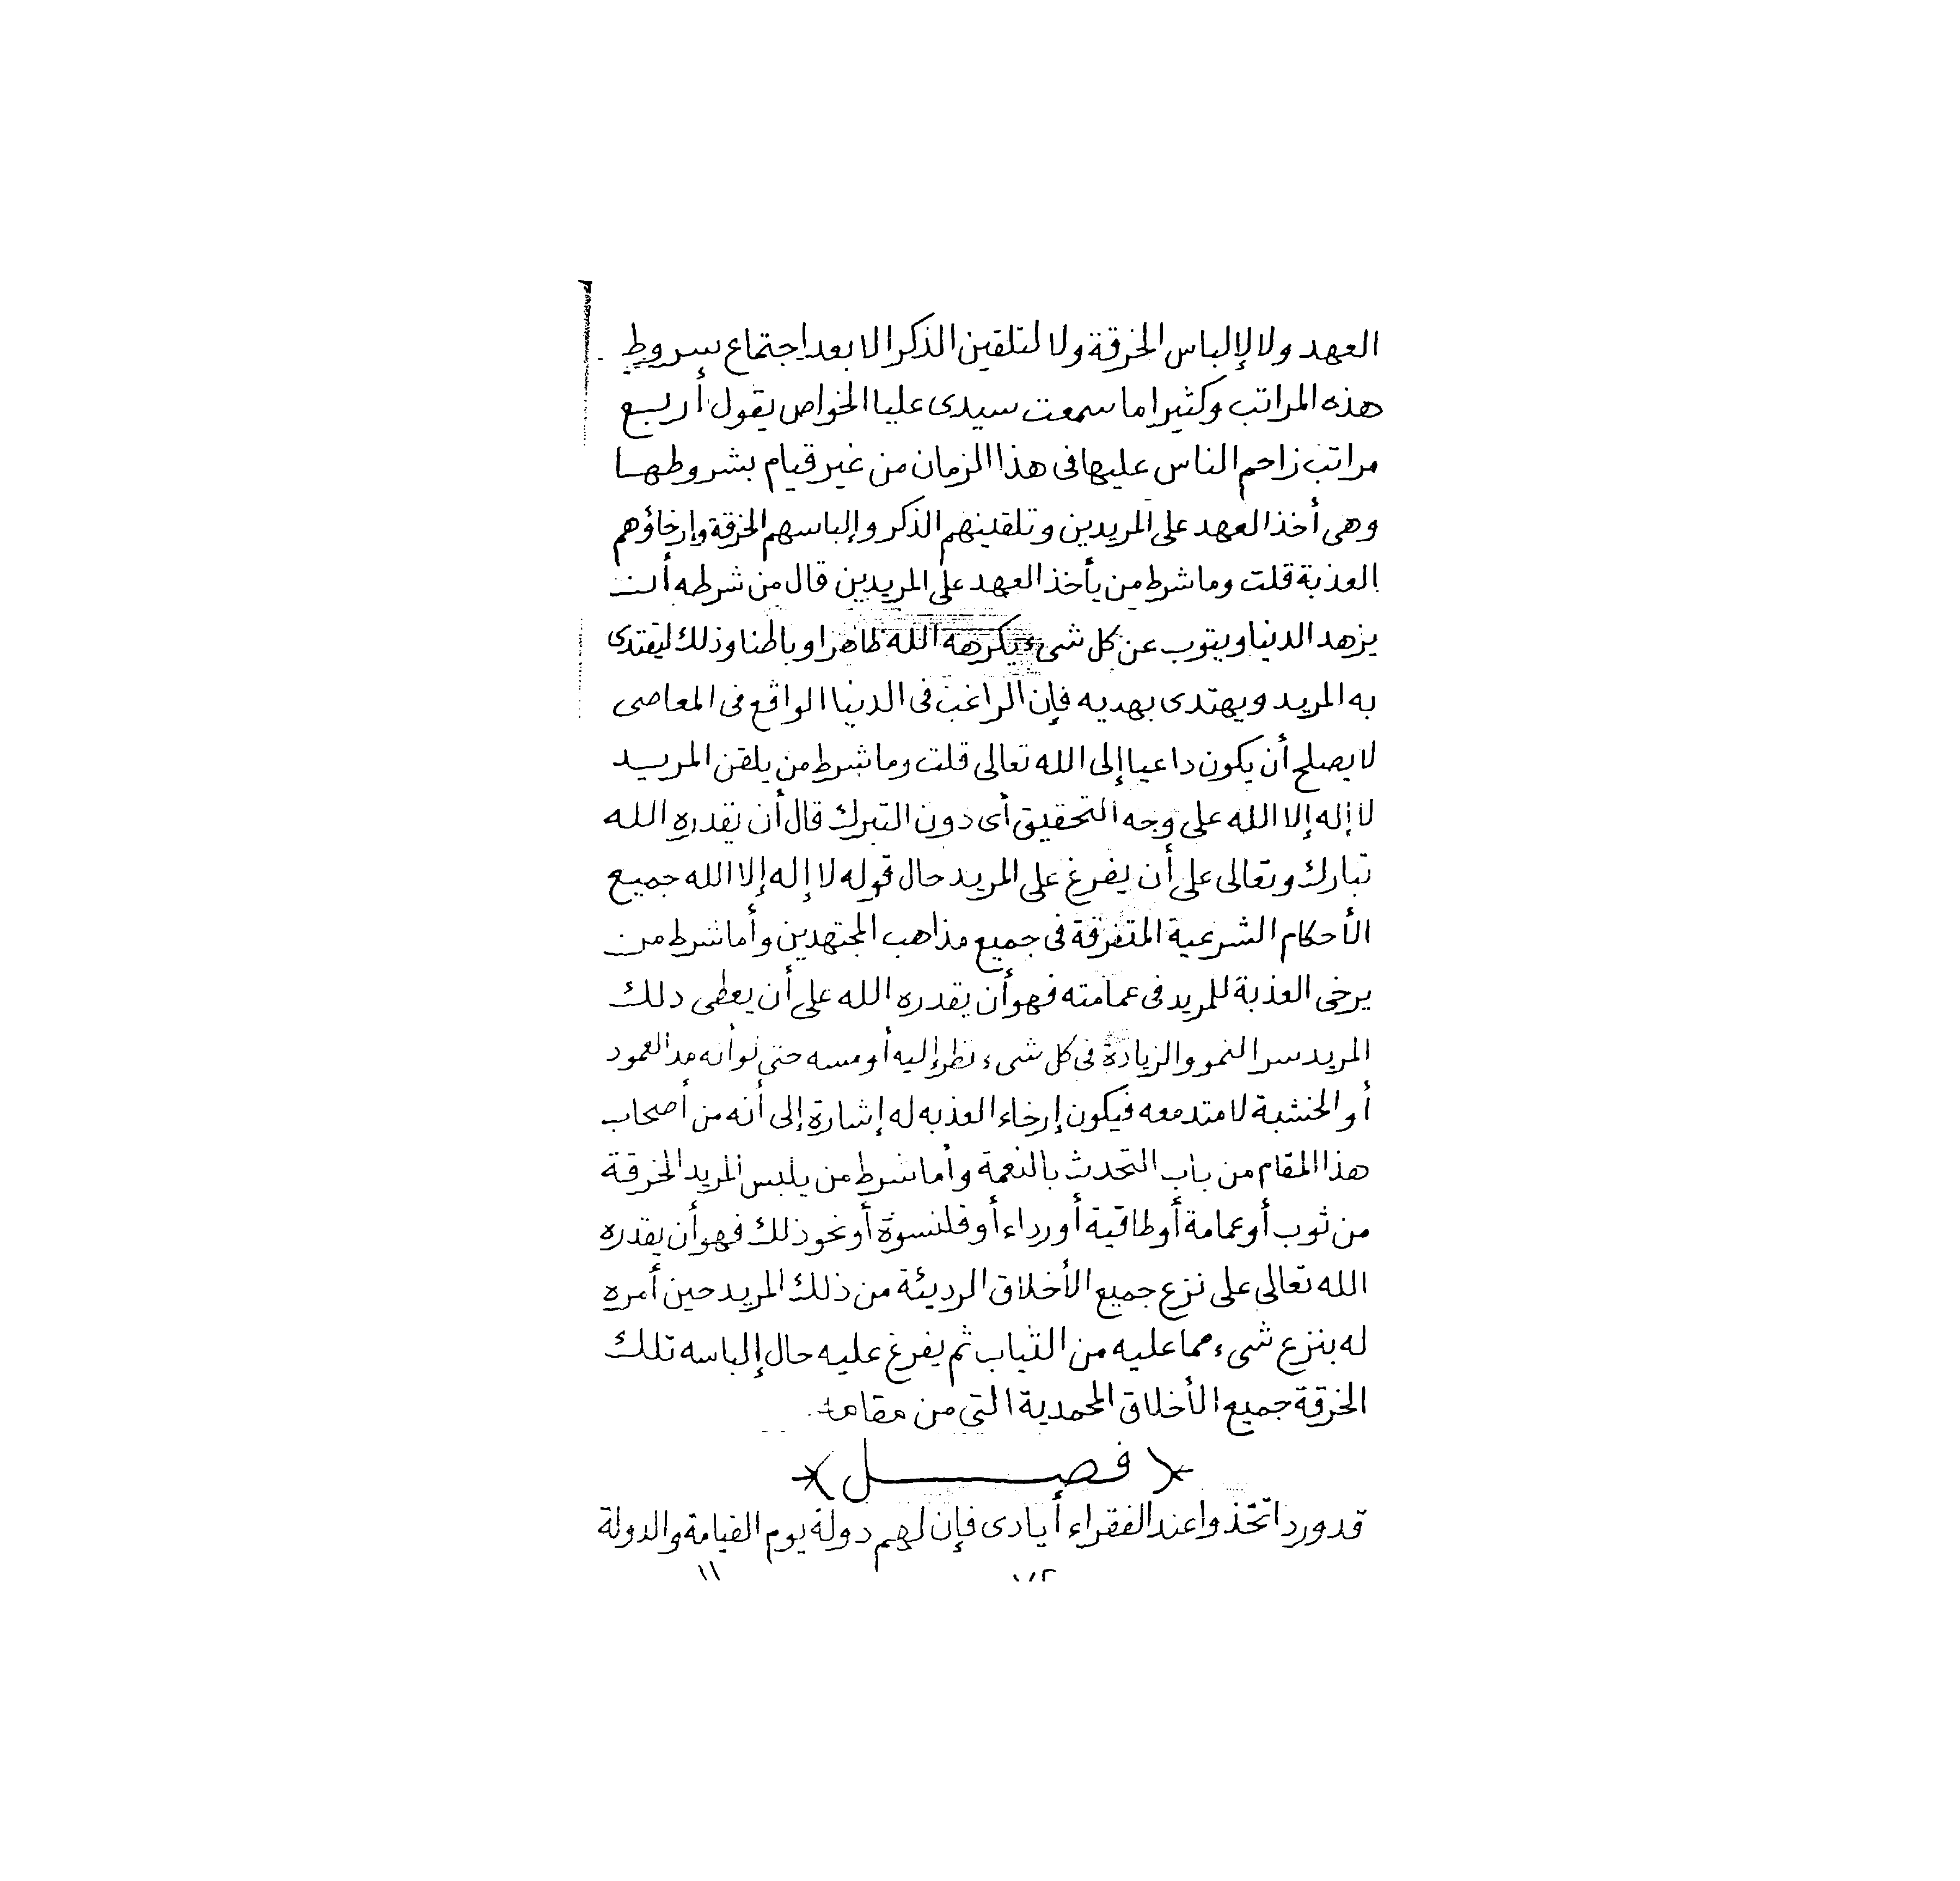 العهد ولا لإلباس الخرقة ولا لتلقين الذكر الا بعد اجتماع شروط
هذه المراتب وكثيرا ما سمعت سيدى عليا الخواص يقول أربع
مراتب زاحم الناس عليها فى هذا الزمان من غير قيام بشروطها
وهى أخذ العهد على المريدين وتلقينهم الذكر وإلباسهم الخرقة وإرخاؤهم
العذبة قلت وما شرط من يأخذ العهد على المريدين قال من شرطه أن
يزهد الدنيا ويتوب عن كل شىء يكرهه الله ظاهرا وباطنا وذلك ليقتدى
به المريد ويهتدى بهديه فإن الراغب فى الدنيا الواقع فى المعاصى
لا يصلح أن يكون داعيا إلى الله تعالى قلت وما شرط من يلقن المريد
لا إله إلا الله على وجه التحقيق أى دون التبرك قال أن يقدره الله
تبارك وتعالى على أن يفرغ على المريد حال قوله لا إله إلا الله جميع
الأحكام الشرعية المتفرقة فى جميع مذاهب المجتهدين وأما شرط من
يرخى العذبة للمريد فى عمامته فهو أن يقدره الله على أن يعطى ذلك
المريد سر النمو والزيادة فى كل شىء نظر إليه أو مسه حتى لو أنه مد العمود
أو الخشبة لامتد معه فيكون إرخاء العذبه له إشارة إلى أنه من أصحاب
هذا المقام من باب التحدث بالنعمة وأما شرط من يلبس المريد الخرقة
من ثوب أو عمامة أو طاقية أو رداء أو قلنسوة أو نحو ذلك فهو أن يقدره
الله تعالى على نزع جميع الأخلاق الرديئة من ذلك المريد حين أمره
له بنزع شىء مما عليه من الثياب ثم يفرغ عليه حال إلباسه تلك
الخرقة جميع الأخلاق المحمدية التى من مقامه
فصل
قد ورد اتخذوا عند الفقراء أيادى فإن لهم دولة يوم القيامة والدولة
١١